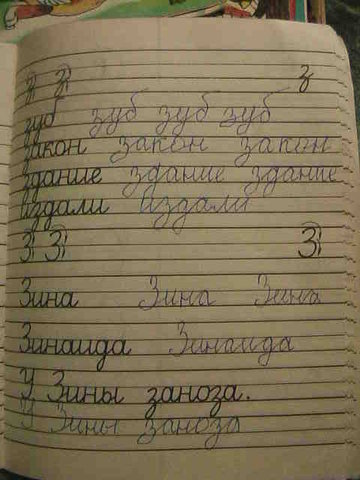 з з з
зуб зуб зуб зуб
закон закон закон
здание здание здание
издали издали
З З З
Зина Зина Зина
Зинаида Зинаида
У Зины заноза.
У Зины заноза